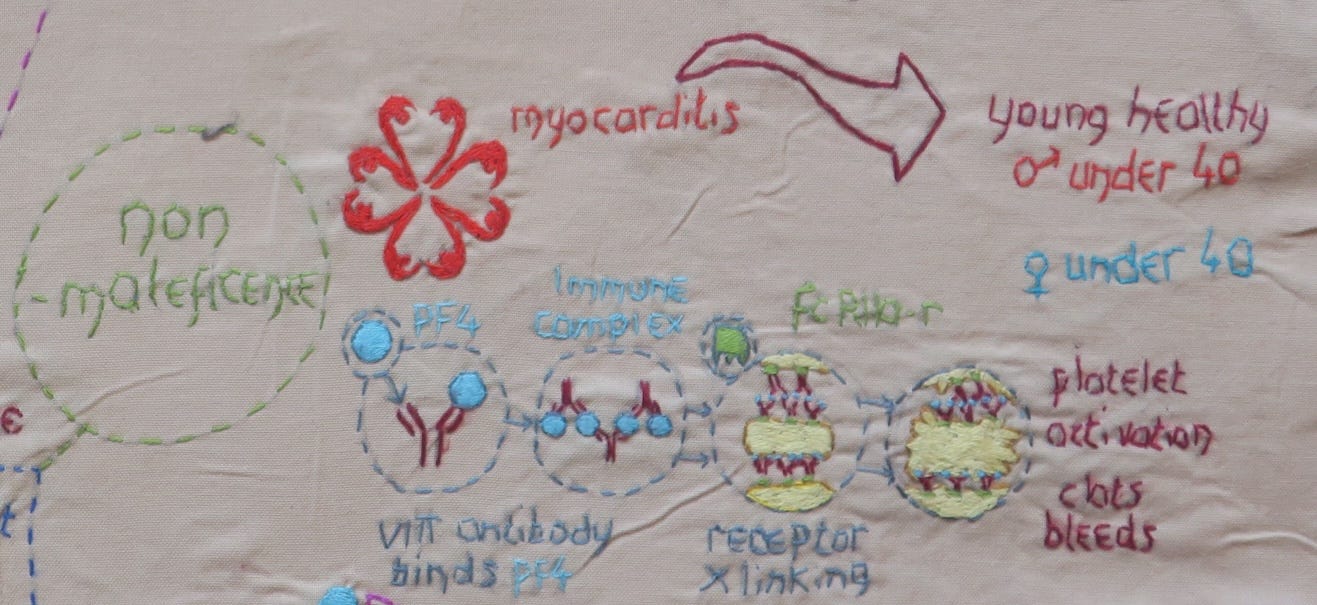 myocarditis
young healthy
♂ under 40
♀ under 40
non
-maleficence
PF4
immune
complex
platelet
activation
clots
bleeds
VITT antibody
binds PF4
receptor
x linking
e
t